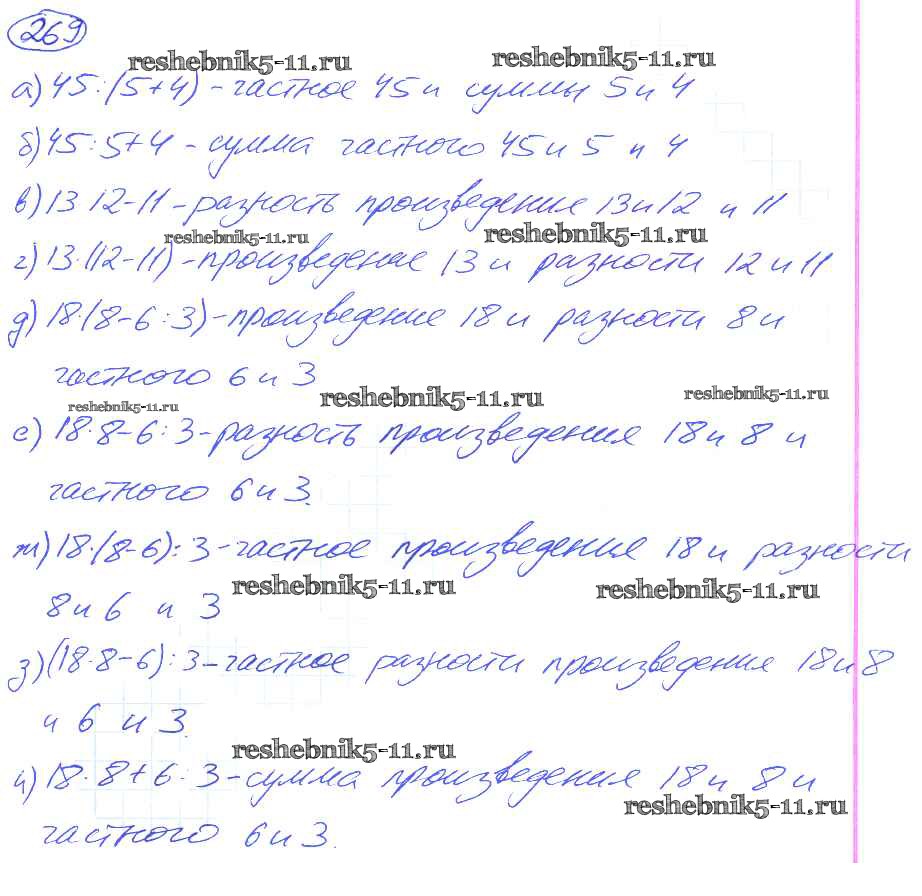 269
reshebnik5-11.ru reshebnik5-11.ru
а) 45:(5+4) - частное 45 и суммы 5 и 4
б) 45:5+4 - сумма частного 45 и 5 и 4
в) 13 12-11 - разность произведения 13 и 12 и 11
reshebnik5-11.ru reshebnik5-11.ru
г) 13·(12-11) - произведение 13 и разности 12 и 11
д) 18·(8-6:3) - произведение 18 и разности 8 и
частного 6 и 3
reshebnik5-11.ru reshebnik5-11.ru reshebnik5-11.ru
е) 18·8-6:3 - разность произведения 18 и 8 и
частного 6 и 3.
ж) 18·(8-6):3 - частное произведения 18 и разности
reshebnik5-11.ru reshebnik5-11.ru
8 и 6 и 3
з) (18·8-6):3 - частное разности произведение 18 и 8
и 6 и 3.
reshebnik5-11.ru
и) 18·8+6:3 - сумма произведения 18 и 8 и
reshebnik5-11.ru
частного 6 и 3.